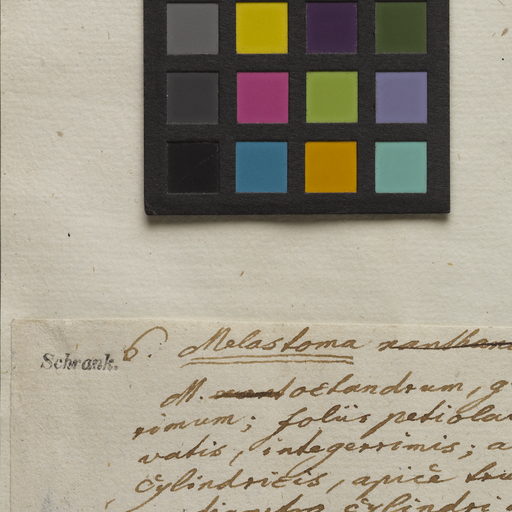 Schrank.
6. Melastoma xanthan
M. octandrum, g
rimum; foliis petiola
vatis, integerrimis; a
cylindricis, apice tru
cylindri